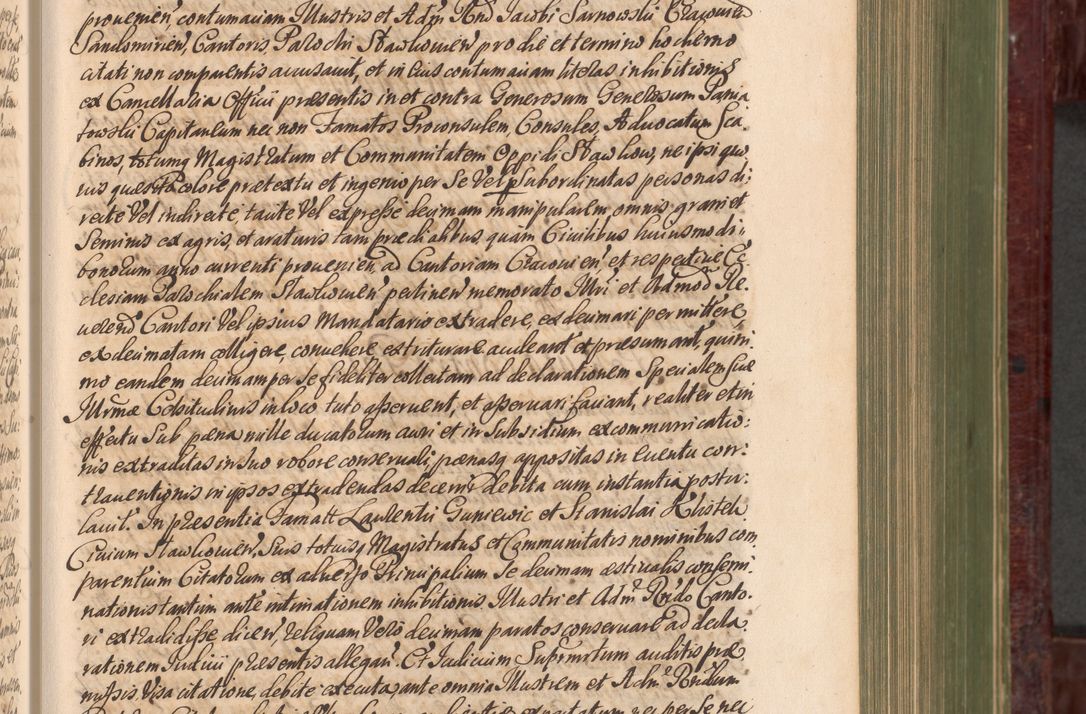 provenien contumaciam Illustris et Adm Rnd Jacobi Sarnowski Cracovien
Sandomirien, Cantoris Parochi Stawkowien pro die et termino hodierno
citati non comparentis accusavit, et in eius contumaciam literas inhibitionis
ex Cancellaria Officii praesentis in et contra Generosum Generosum Ponia
towski Capitaneum nec non Famatos Proconsulem Consules, Advocatum Sca
binos, totumq Magistratum et Communitatem Oppidi Stawkow, ne ipsi quo
vis quaesito colore praetextu et ingenio per se vel Subordinatas personas di
recte vel indirecte, tacite vel expresse decimam manipularem omnis grani et
Seminis ex agris, et araturis tam praedialibus quam Civilibus huiusmodi
bonorum anno currenti provenien, ad Cantoriam Cracovien et respective Ec
clesiam Parochialem Stawkowien pertinen memorato Illri et Admod Re
verend Cantori vel ipsius Mandatario extradere, ex decimari permittere
ex decimatam colligere, convehere, extriturare audeant et praesumant, quini
mo eandem decimam per se fideliter collectam ad declarationem Specialem suae
Illrmae Celsitudinis in loco tuto asservent, et asservari faciant, realiter et in
effectu sub paena mille ducatorum auri et in Subsidium excommunicatio:
nis extraditas in suo robore conservari, paenasq appositas in eventu con:
traventionis in ipsos extradendas decerni debita cum instantia postu:
lavit. In praesentia Famatt Laurentii Guniewic et Stanislai Khistek
Civium Stawkowien, Suis totiusq Magistratus et Communitatis nominibus com
parentium Citatorum ex adverso Principalium se decimam aestivalis consemi
nationis tantum ante intimationem inhibitionis Illustri et Adm Rndo Canto.
ri extradidisse dicen, reliquam vero decimam paratos conservare ad decla.
rationem Iudicii praesentis allegan. Et Iudicium Suprmitum auditis prae
missis, visa citatione, debite executa, ante omnia Illustrem et Adm Rndum